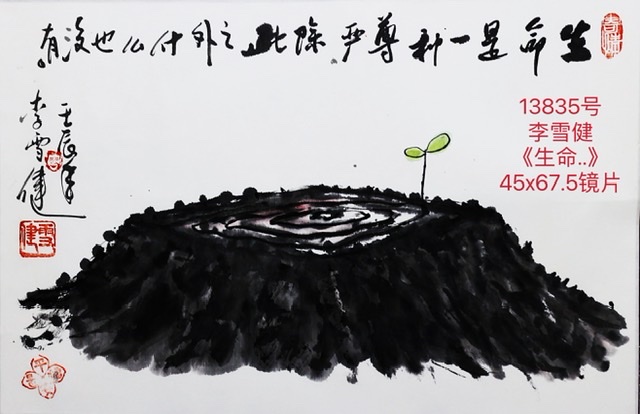 生命是一种尊严除此之外什么也没有
壬辰年
李雪健
雪健
13835号
李雪健
《生命..》
45x67.5镜片